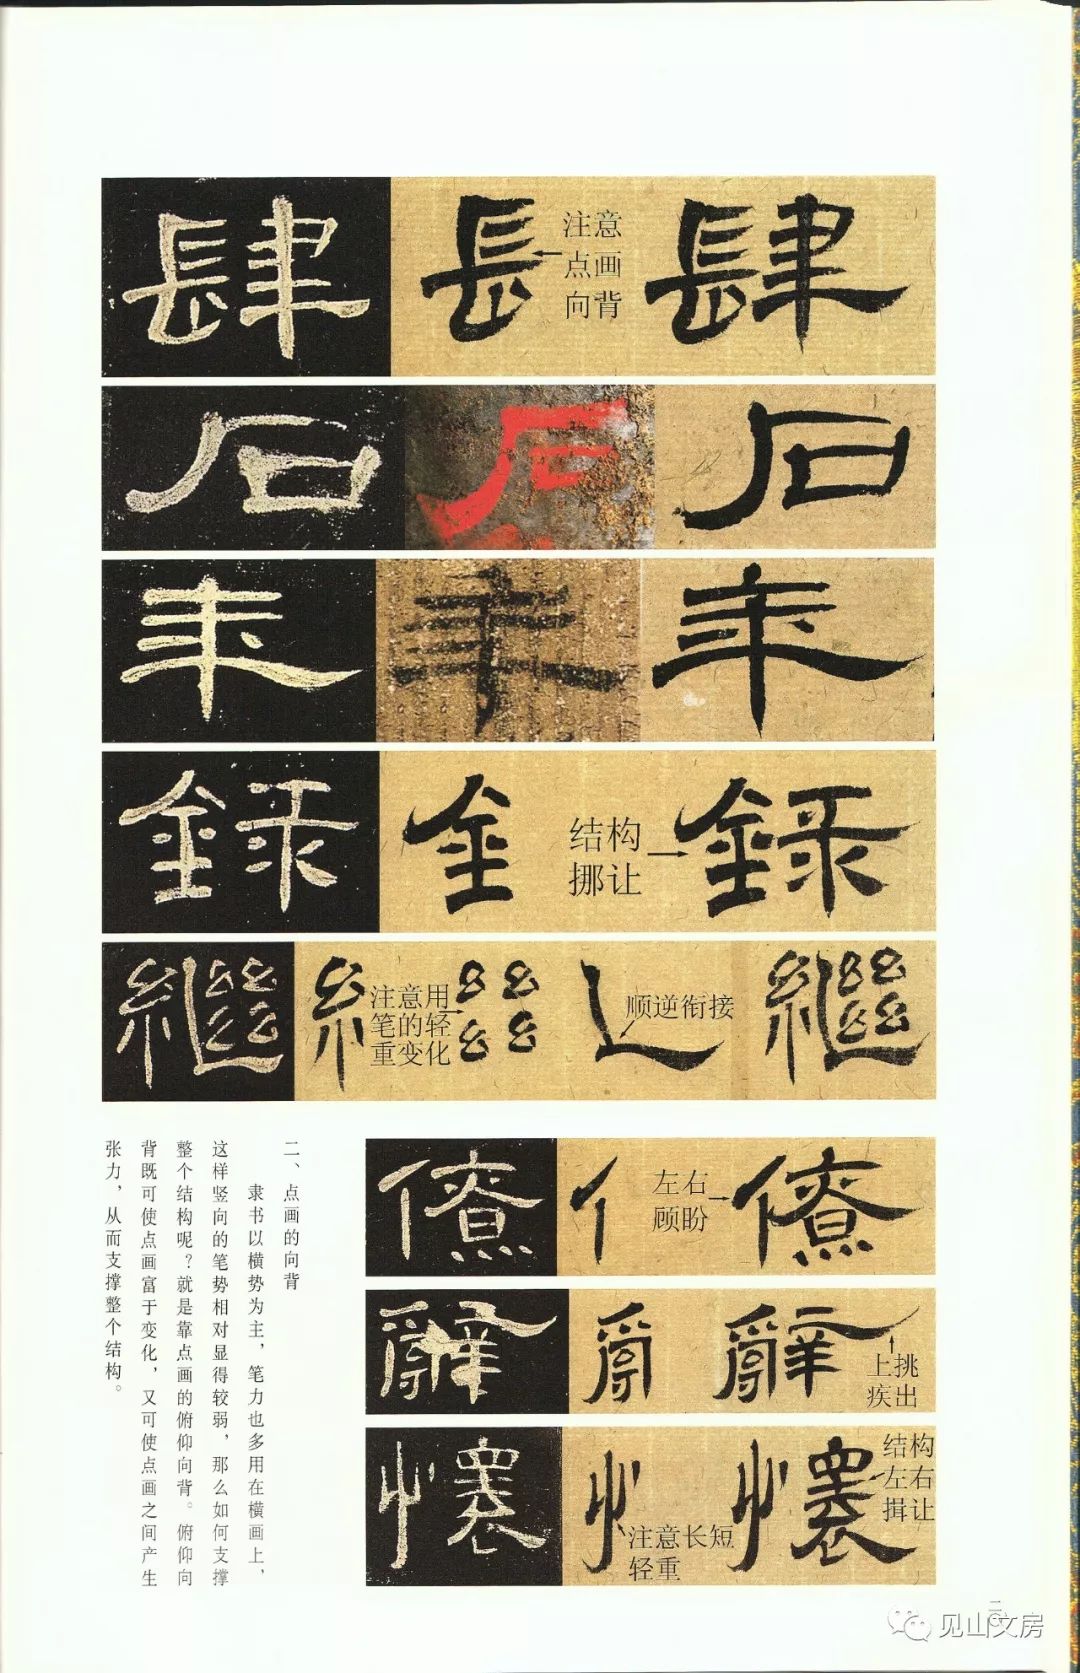 肆
長
注意
点画
向背
肆
石
石
石
年
年
年
録
金
结构
挪让
録
繼
糸
注意用
笔的轻
重变化
顺逆衔接
繼
僚
亻
左右
顾盼
僚
辭
辭
上挑
疾出
懷
忄
注意长短
轻重
懷
结构
左右
揖让
二、点画的向背
隶书以横势为主，笔力也多用在横画上，
这样竖向的笔势相对显得较弱，那么如何支撑
整个结构呢？就是靠点画的俯仰向背。俯仰向
背既可使点画富于变化，又可使点画之间产生
张力，从而支撑整个结构。
见山文房